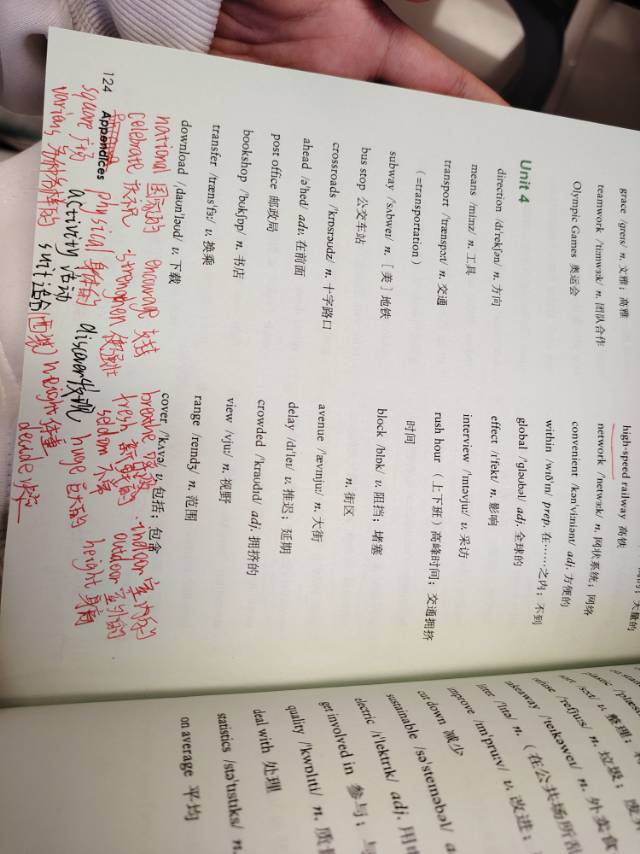 grace /greɪs/ n. 文雅；高雅
teamwork /ˈtiːmwɜːk/ n. 团队合作
Olympic Games 奥运会
Unit 4
direction /dɪˈrekʃən/ n. 方向
means /miːnz/ n. 工具
transport /ˈtrænspɔːt/ n. 交通
(=transportation)
subway /ˈsʌbweɪ/ n. [美] 地铁
bus stop 公交车站
crossroads /ˈkrɒsrəʊdz/ n. 十字路口
ahead /əˈhed/ adv. 在前面
post office 邮政局
bookshop /ˈbʊkʃɒp/ n. 书店
transfer /trænsˈfɜː/ v. 换乘
download /ˌdaʊnˈləʊd/ v. 下载
high-speed railway 高铁
network /ˈnetwɜːk/ n. 网状系统；网络
convenient /kənˈviːniənt/ adj. 方便的
within /wɪðˈɪn/ prep. 在……之内；不到
global /ˈɡləʊbəl/ adj. 全球的
effect /ɪˈfekt/ n. 影响
interview /ˈɪntəvjuː/ v. 采访
rush hour （上下班）高峰时间；交通拥挤
时间
block /blɒk/ v. 阻挡；堵塞
n. 街区
avenue /ˈævɪnjuː/ n. 大街
delay /dɪˈleɪ/ v. 推迟；延期
crowded /ˈkraʊdɪd/ adj. 拥挤的
view /vjuː/ n. 视野
range /reɪndʒ/ n. 范围
cover /ˈkʌvə/ v. 包括；包含
national 国家的 encourage 支持 breathe 呼吸 indoor 室内的
celebrate 庆祝 strengthen 使强壮 fresh 新鲜的 outdoor 室外的
physical 身体的 seldom 不常
124 Appendices
square 广场 activity 活动 discover 发现 huge 巨大的 height 身高
various suit 适合 weight 体重 decide 决定
cut down 减少
improve /ɪmˈpruːv/ v. 改进；
takeaway /ˈteɪkəweɪ/ n. 外卖食
sustainable /səˈsteɪnəbəl/
electric /ɪˈlektrɪk/ adj. 用电
get involved in 参与；与
quality /ˈkwɒlɪti/ n. 质量
deal with 处理
statistics /stəˈtɪstɪks/ n.
on average 平均